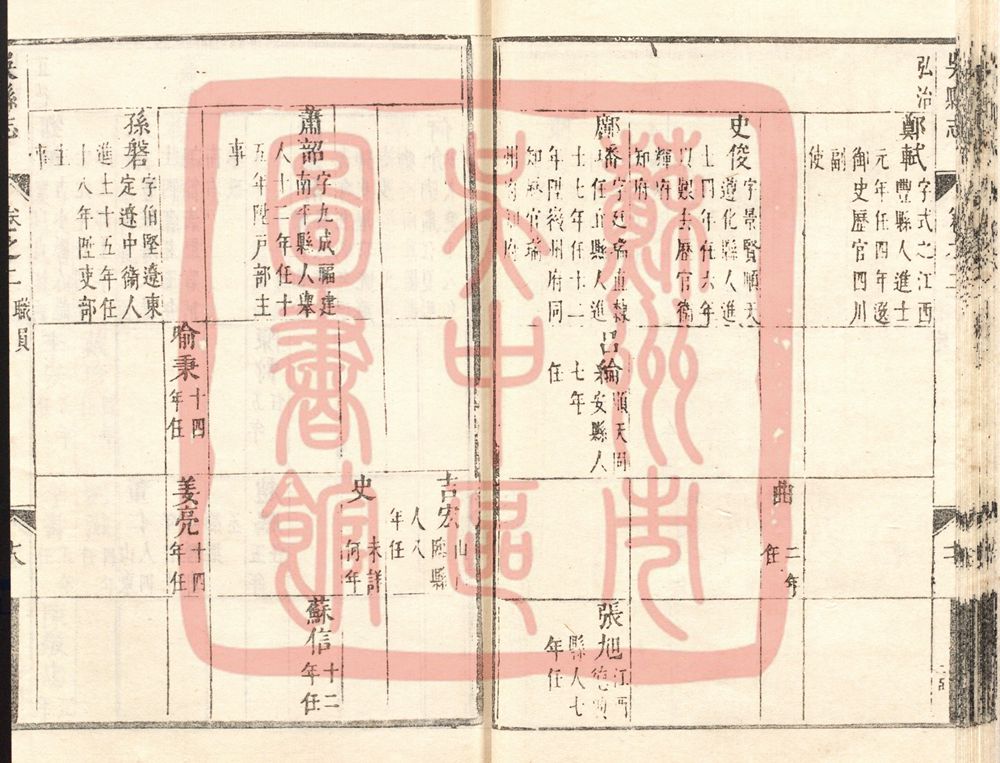 吳縣志
弘治
鄭軾字式之江西
豐縣人進士
元年任四年選
御史歷官四川
副
使
史俊字景賢順天
遵化縣人進
士四年任六年
以憂去歷官衛
輝府
知府
鄺璠字廷瑞直隸
任丘縣人進
士七年任十二
年陞徽州府同
知歷官瑞
州府知府
呂綸順天固
安縣人
七年
任
曲
二年
任
張旭江西
德興
縣人七
年任
蕭韶字九成福建
南平縣人舉
人十二年任十
五年陞戶部主
事
孫磐字伯堅遼東
定遼中衛人
進士十五年任
十八年陞吏部
主
事
喻秉十四
年任
吉宏山
陰縣
人八
年任
史
未詳
何年
姜亮十四
年任
蘇信十二
年任
吳縣志
卷之二
職員
蘇州市吳中區圖書館